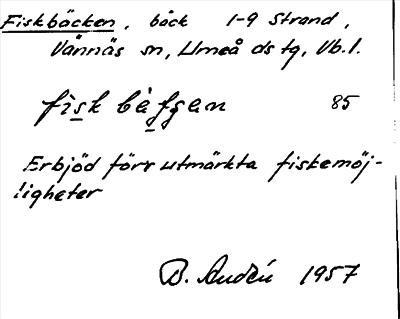 Fiskbäcken, bäck 1-9 Strand,
Vännäs sn, Umeå ds tg, Vb. l.
85
Erbjöd förr utmärkta fiskemöj-
ligheter
B. 1957